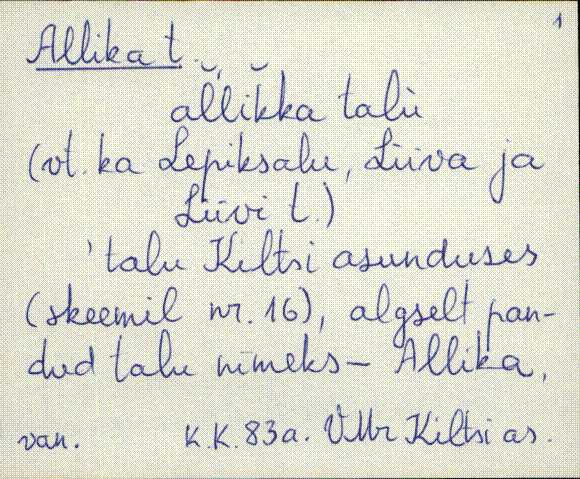 1
Allika t.
al̆lik̆ka talù
(vt. ka Lepiksalu, Liiva ja
Liivi t.)
'talu Kiltsi asunduses
(skeemil nr. 16), algselt pan-
dud talu nimeks — Allika,
van. K.K. 83a. VMr Kiltsi as.